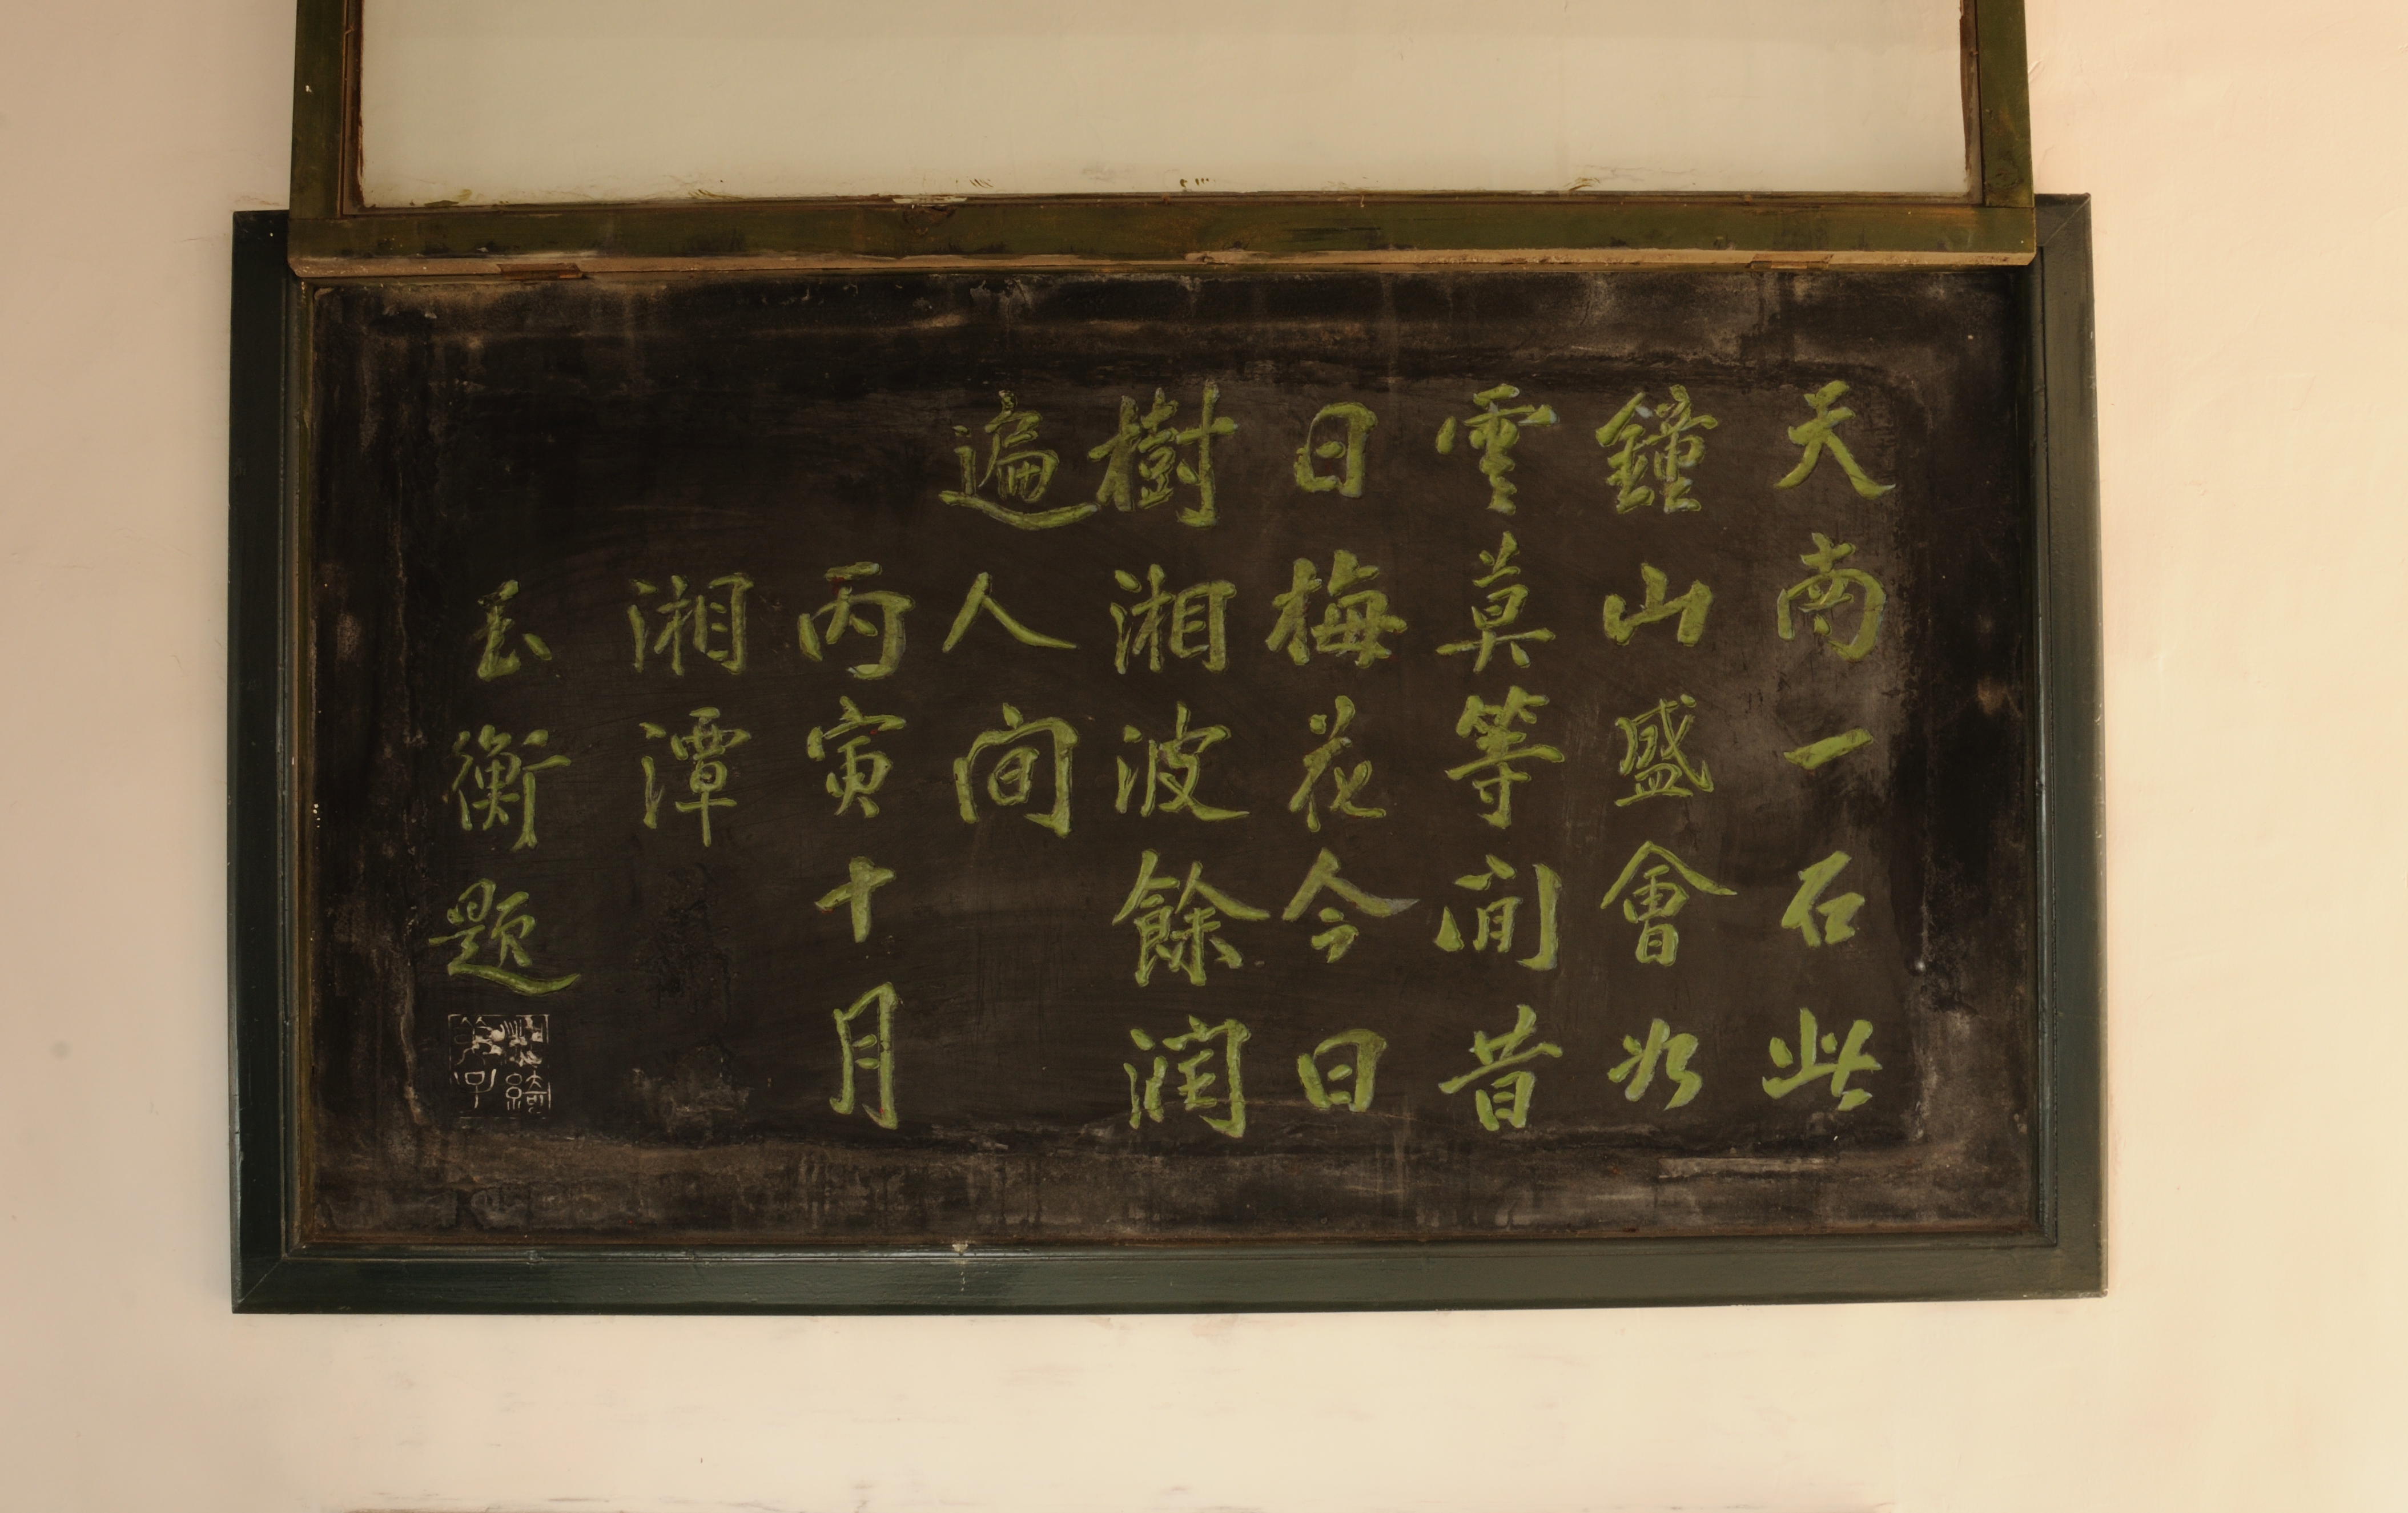 天南一石此
鐘山盛會如
雲莫等閒昔
日梅花今日
樹湘波餘润
遍人间
丙寅十月
湘潭
玉衡题